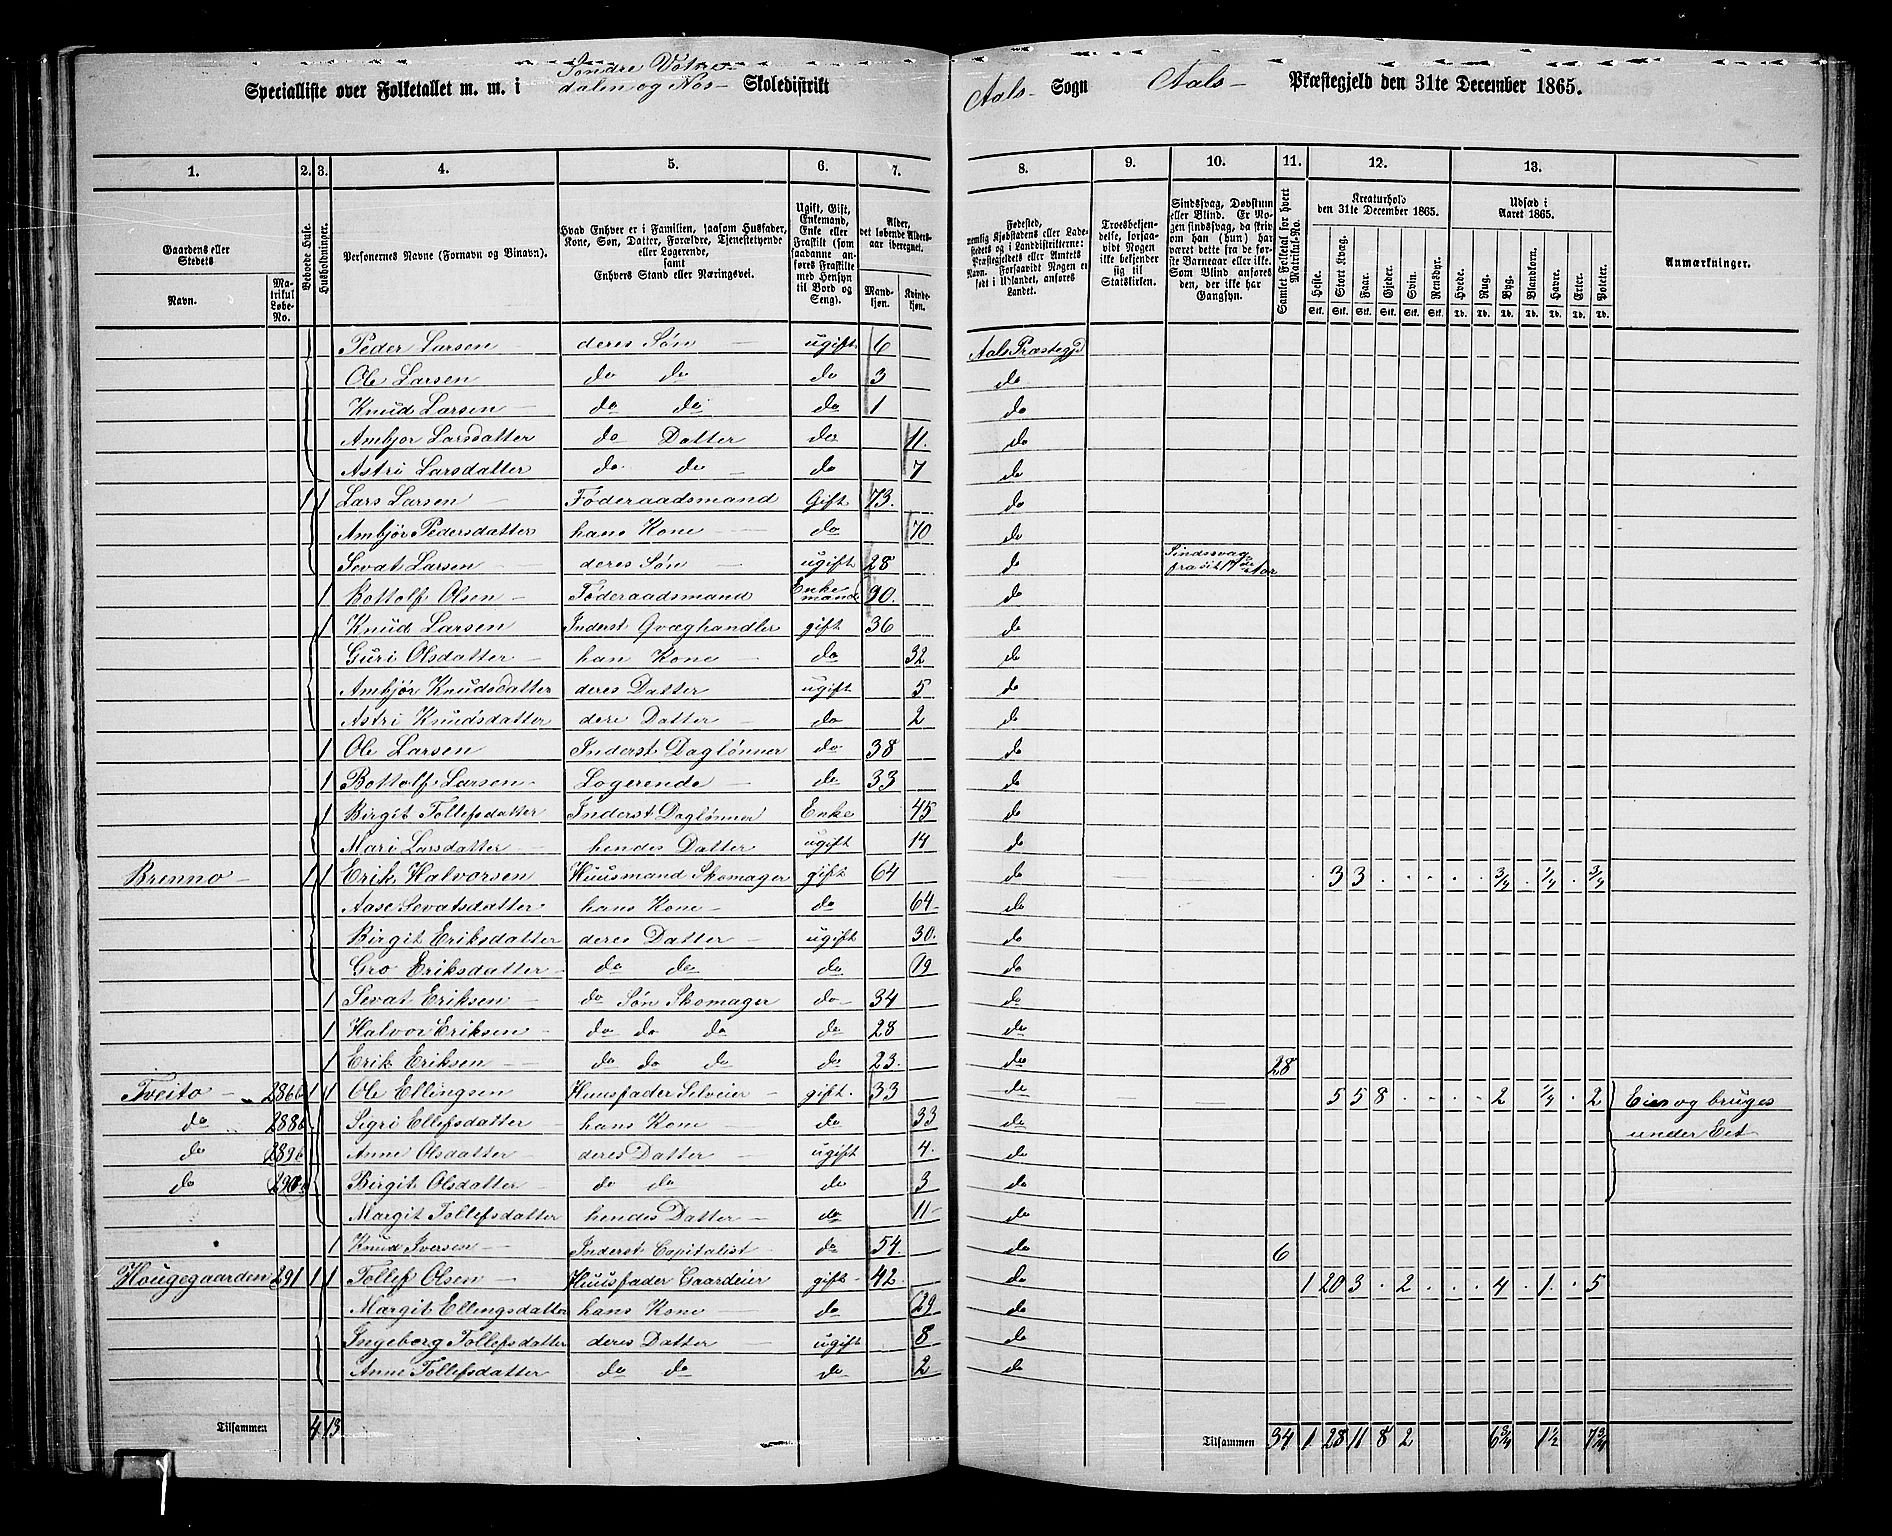 Specialliste over Folketallet m. m. i Søndre Votne- Skoledistrikt Aals- Sogn Aals- Præstegjeld den 31te December 1865.
dalen og Nos-
1. 2. 3. 4. 5. 6. 7. 8. 9. 10. 11. 12. 13.
Gaardens eller Stedets
Navn.
Matrikul Løbe-No.
Beboede Huse.
Husholdninger.
Personernes Navne (Fornavn og Binavn).
Hvad Enhver er i Familien, saasom Husfader, Kone, Søn, Datter, Forældre, Tjenestetyende eller Logerende, samt Enhvers Stand eller Næringsvei.
Ugift, Gift, Enkemand, Enke eller Fraskilt (som saadanne anføres Fraskilte med Hensyn til Bord og Seng).
Alder, det løbende Aldersaar iberegnet.
Mandkjøn. Kvindekjøn.
Fødested, nemlig Kjøbstadens eller Ladestedets og i Landdistrikterne: Præstegjeldets eller Amtets Navn. Forsaavidt Nogen er født i Udlandet, anføres Landet.
Troesbekjendelse, forsaavidt Nogen ikke bekjender sig til Statskirken.
Sindssvag, Døvstum eller Blind. Er Nogen sindssvag, da skrives om han (hun) har været dette fra de første Barneaar eller ikke. Som Blind anføres den, der ikke har Gangsyn.
Samlet Folketal for hvert Matrikul-No.
Kreaturhold den 31te December 1865.
Heste. Stort Kvæg. Faar. Gjeder. Svin. Rensdyr.
Stk. Stk. Stk. Stk. Stk. Stk.
Udsæd i Aaret 1865.
Hvede. Rug. Byg. Blandkorn. Havre. Erter. Poteter.
Td. Td. Td. Td. Td. Td. Td.
Anmærkninger.
Peder Larsen deres Søn ugift 6 Aals Præstegjd
Ole Larsen do do do 3 do
Knud Larsen do do do 1 do
Ambjor Larsdatter do Datter do 11. do
Astri Larsdatter do do do 7 do
1 1 Lars Larsen Føderaadsmand Gift 73. do
Ambjør Pedersdatter hans Kone do 70 do
Sevat Larsen deres Søn ugift 28 do Sindssvag
1 Bottolf Olsen Føderaadsmand Enkemand 90. do
1 Knud Larsen Inderst Qvæghandler gift 36 do
Guri Olsdatter han Kone do 32 do
Ambjør Knudsdatter deres Datter ugift 5 do
Astri Knudsdatter dere Datter do 2 do
1 Ole Larsen Inderst Daglønner do 38 do
1 Bottolf Larsen Logerende do 33 do
1 Birgit Tollefsdatter Inderst Daglønner Enke 45 do
Mari Larsdatter hendes Datter ugift 14 do
Brenno 1 1 Erik Halvorsen Huusmand Skomager gift 64 do . 3 3 . . . . . 3/4 . 1/4 . 3/4
Aase Sevatsdatter hans Kone do 64 do
Birgit Eriksdatter deres Datter ugift 30. do
Gro Eriksdatter do do do 19 do
1 Sevat Eriksen do Søn Skomager do 34 do
1 Halvor Eriksen do do do do 28 do
1 Erik Eriksen do do do do 23. do 28
Tveito 286b 1 1 Ole Ellingsen Huusfader Selveier gift. 33 do 5 5 8 . . . . 2 . 1/4 . 2 Eies og bruges
do 288b Sigri Ellefsdatter hans Kone do 33 do under Eet
do 289b Anne Olsdatter deres Datter ugift 4. do
do Birgit Olsdatter do do do 3 do
Margit Tollefsdatter hendes Datter do 11 do
1 Knud Iversen Inderst Capitalist do 54. do 6
Hougegaarden 291 1 1 Tollef Olsen Huusfader Gaardeier gift 42. do 1 20 3 . 2 . . . 4 . 1. . 5
Margit Ellingsdatter hans Kone do 29 do
Ingeborg Tollefsdatter deres Datter ugift 8 do
Anne Tollefsdatter do do do 2 do
Tilsammen 4 13 Tilsammen 34 1 28 11 8 2 6 3/4 1 1/2 7 3/4